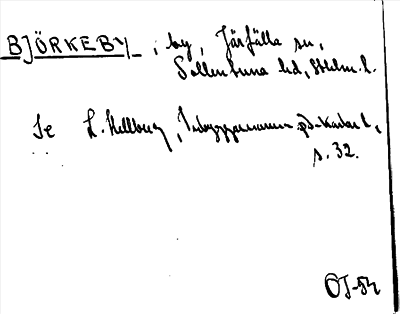 BJÖRKEBY, by, Järfälla sn,
Sollentuna hd, Sthlm. l.
Se L. Hellberg, Inbyggarnamn på -karlar,
s. 32.
ÖJ-54